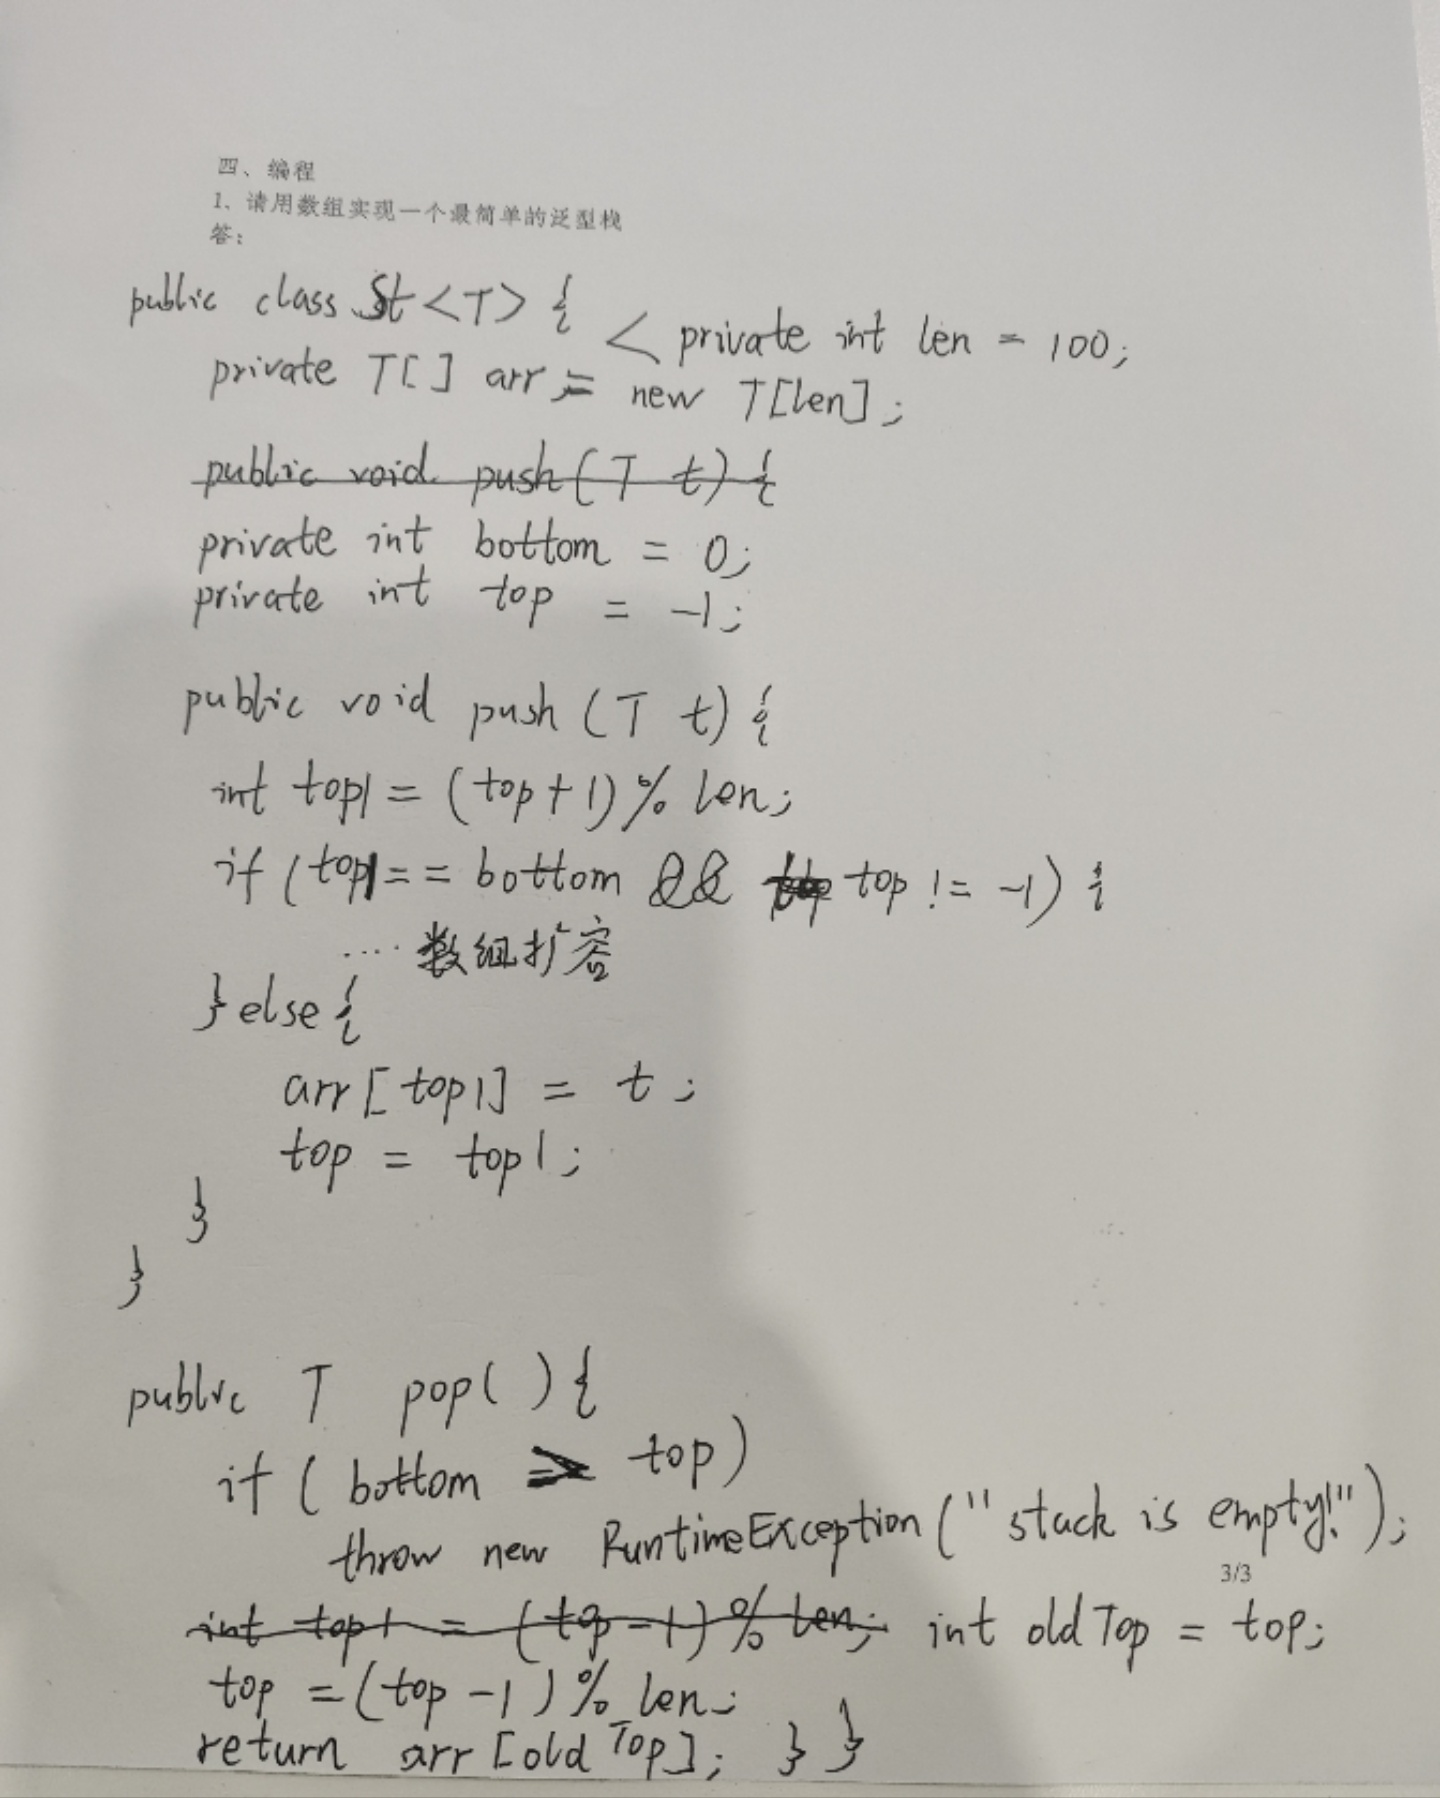 四、编程
1、请用数组实现一个最简单的泛型栈
答：
public class St<T> {
< private int len = 100;
private T[] arr = new T[len];
public void push(T t) {
private int bottom = 0;
private int top = -1;
public void push (T t) {
int top1 = (top+1) % len;
if (top1 == bottom && top != -1) {
... 数组扩容
} else {
arr[top1] = t;
top = top1;
}
}
public T pop( ) {
if ( bottom > top)
throw new RuntimeException("stack is empty!");
3/3
int top1 = (top-1) % len; int oldTop = top;
top = (top -1) % len;
return arr[oldTop]; } }